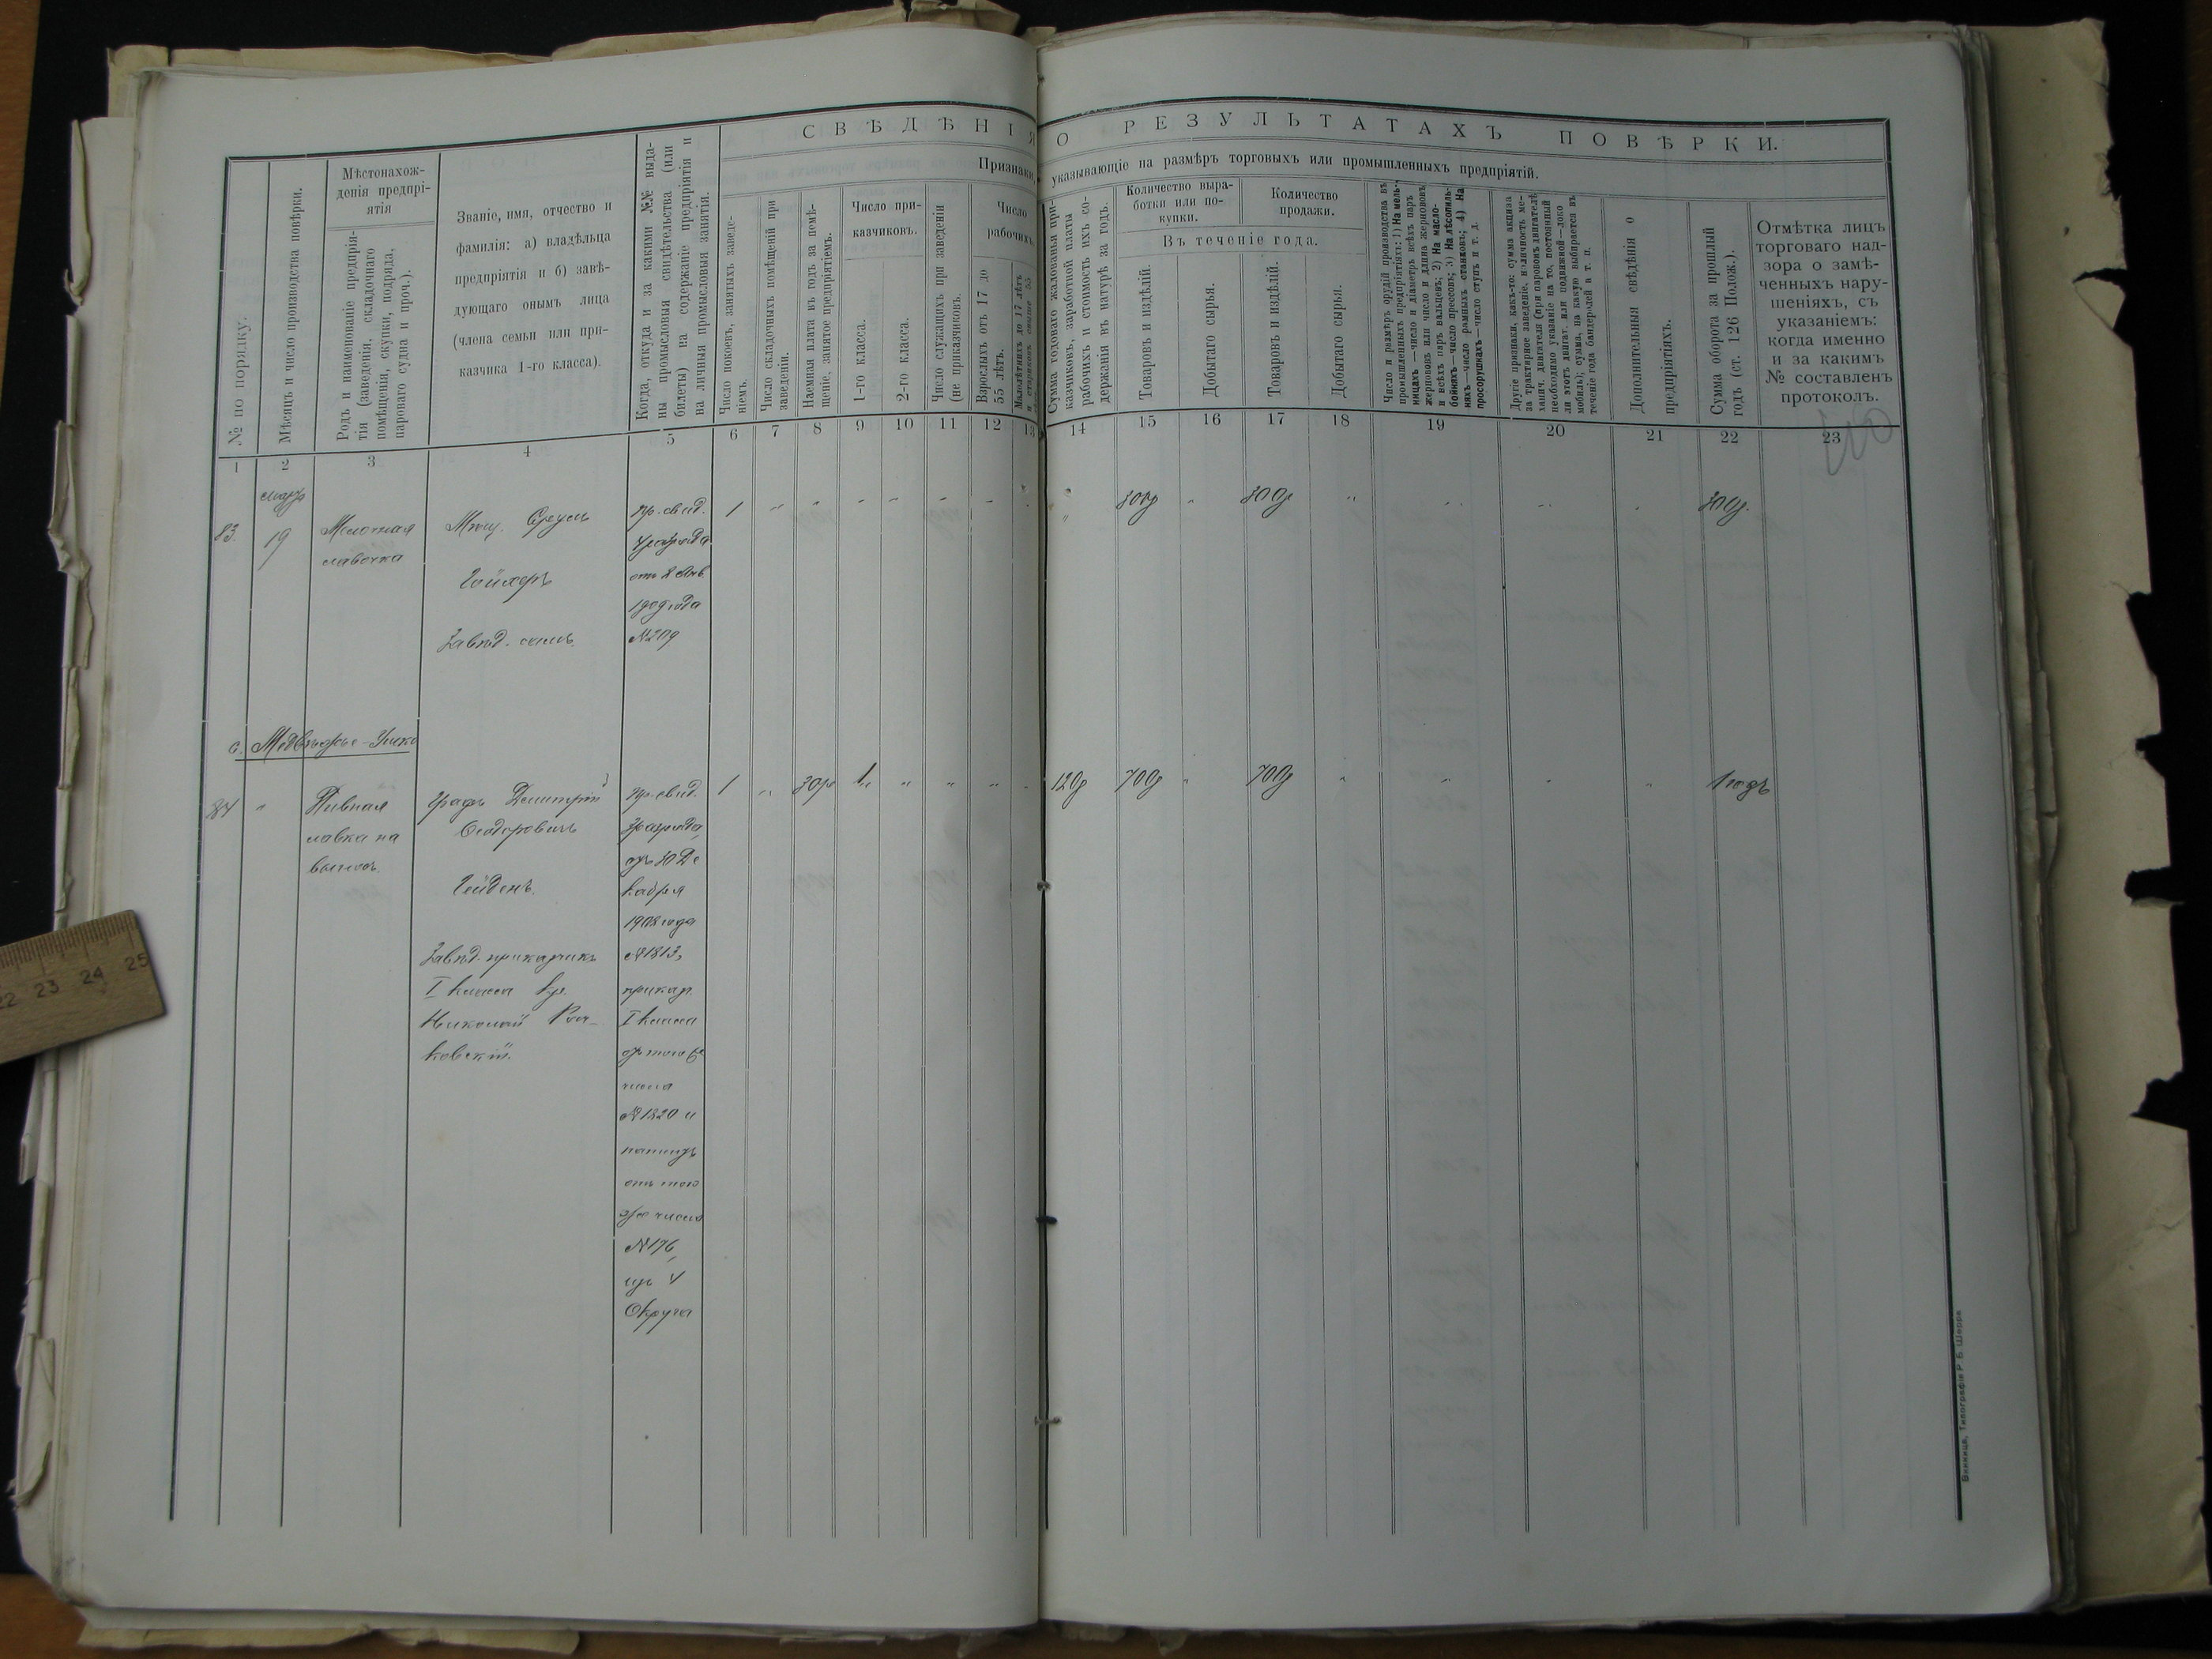 СВѢДѢНІЯ О РЕЗУЛЬТАТАХЪ ПОВѢРКИ.
Признаки, указывающіе на размѣръ торговыхъ или промышленныхъ предпріятій.
№ по порядку.
Мѣсяцъ и число производства повѣрки.
Мѣстонахож-
денія предпрі-
ятія
Родъ и наименованіе предпрія-
тія (заведенія, складочнаго
помѣщенія, скупки, подряда,
парового судна и проч.).
Званіе, имя, отчество и
фамилія: а) владѣльца
предпріятія и б) завѣ-
дующаго онымъ лица
(члена семьи или при-
казчика 1-го класса).
Когда, откуда и за какими №№ выда-
ны промысловыя свидѣтельства (или
билеты) на содержаніе предпріятія и
на личныя промысловыя занятія.
Число покоевъ, занятыхъ заведе-
ніемъ.
Число складочныхъ помѣщеній при
заведеніи.
Наемная плата въ годъ за помѣ-
щеніе, занятое предпріятіемъ.
Число при-
казчиковъ.
1-го класса.
2-го класса.
Число служащихъ при заведеніи
(не приказчиковъ).
Число
рабочихъ.
Взрослыхъ отъ 17 до
55 лѣтъ.
Малолѣтнихъ до 17 лѣтъ
и стариковъ свыше 55
Сумма годового жалованья при-
казчиковъ, заработной платы
рабочихъ и стоимость ихъ со-
держанія въ натурѣ за годъ.
Количество выра-
ботки или по-
купки.
Количество
продажи.
Въ теченіе года.
Товаровъ и издѣлій.
Добытаго сырья.
Товаровъ и издѣлій.
Добытаго сырья.
Число и размѣръ орудій производства въ
промышленныхъ предпріятіяхъ: 1) На мель-
ницахъ—число и діаметръ всѣхъ паръ
жернововъ или число и длина жернововъ
и всѣхъ паръ вальцевъ; 2) На масло-
бойняхъ—число прессовъ; 3) На лѣсопиль-
няхъ—число рамныхъ станковъ; 4) На
просорушкахъ—число ступъ и т. д.
Другіе признаки, какъ-то: сумма акциза
за трактирное заведеніе, наличность ме-
ханич. двигателя (при паровомъ двигателѣ
необходимо указаніе на то, постоянный
ли этотъ двигат. или подвижной—локо
мобиль); сумма, на какую выбирается въ
теченіе года бандеролей и т. п.
Дополнительныя свѣдѣнія о
предпріятіяхъ.
Сумма оборота за прошлый
годъ (ст. 126 Полож.).
Отмѣтка лицъ
торговаго над-
зора о замѣ-
ченныхъ нару-
шеніяхъ, съ
указаніемъ:
когда именно
и за какимъ
№ составленъ
протоколъ.
1 2 3 4 5 6 7 8 9 10 11 12 13 14 15 16 17 18 19 20 21 22 23
83. 19 Мелочная Мѣщ. Пр. свид. 1 " " " " " " " 300р " 300р " 300р.
лавочка
4 разряда
отъ 2 Янв.
1909 года
Завѣд. самъ. №209
с. Медвѣжье-Ушко
84 " Пивная Графъ Дмитрій Пр. свид. 1 " 30р 1 " " " 120р 700р " 700р " " " " 1 годъ
лавка на Ѳеодоровичъ 3 разряда,
выносъ. отъ 30 Де
Гейденъ. кабря
1908 года
Завѣд. приказчикъ №1813,
I класса кр. приказ.
Николай I класса
ковскій. отъ того же
числа
№1820 и
патентъ
отъ того
же числа
№176,
изъ 4
Округа
Винница, Типографія Р. Б. Шерра